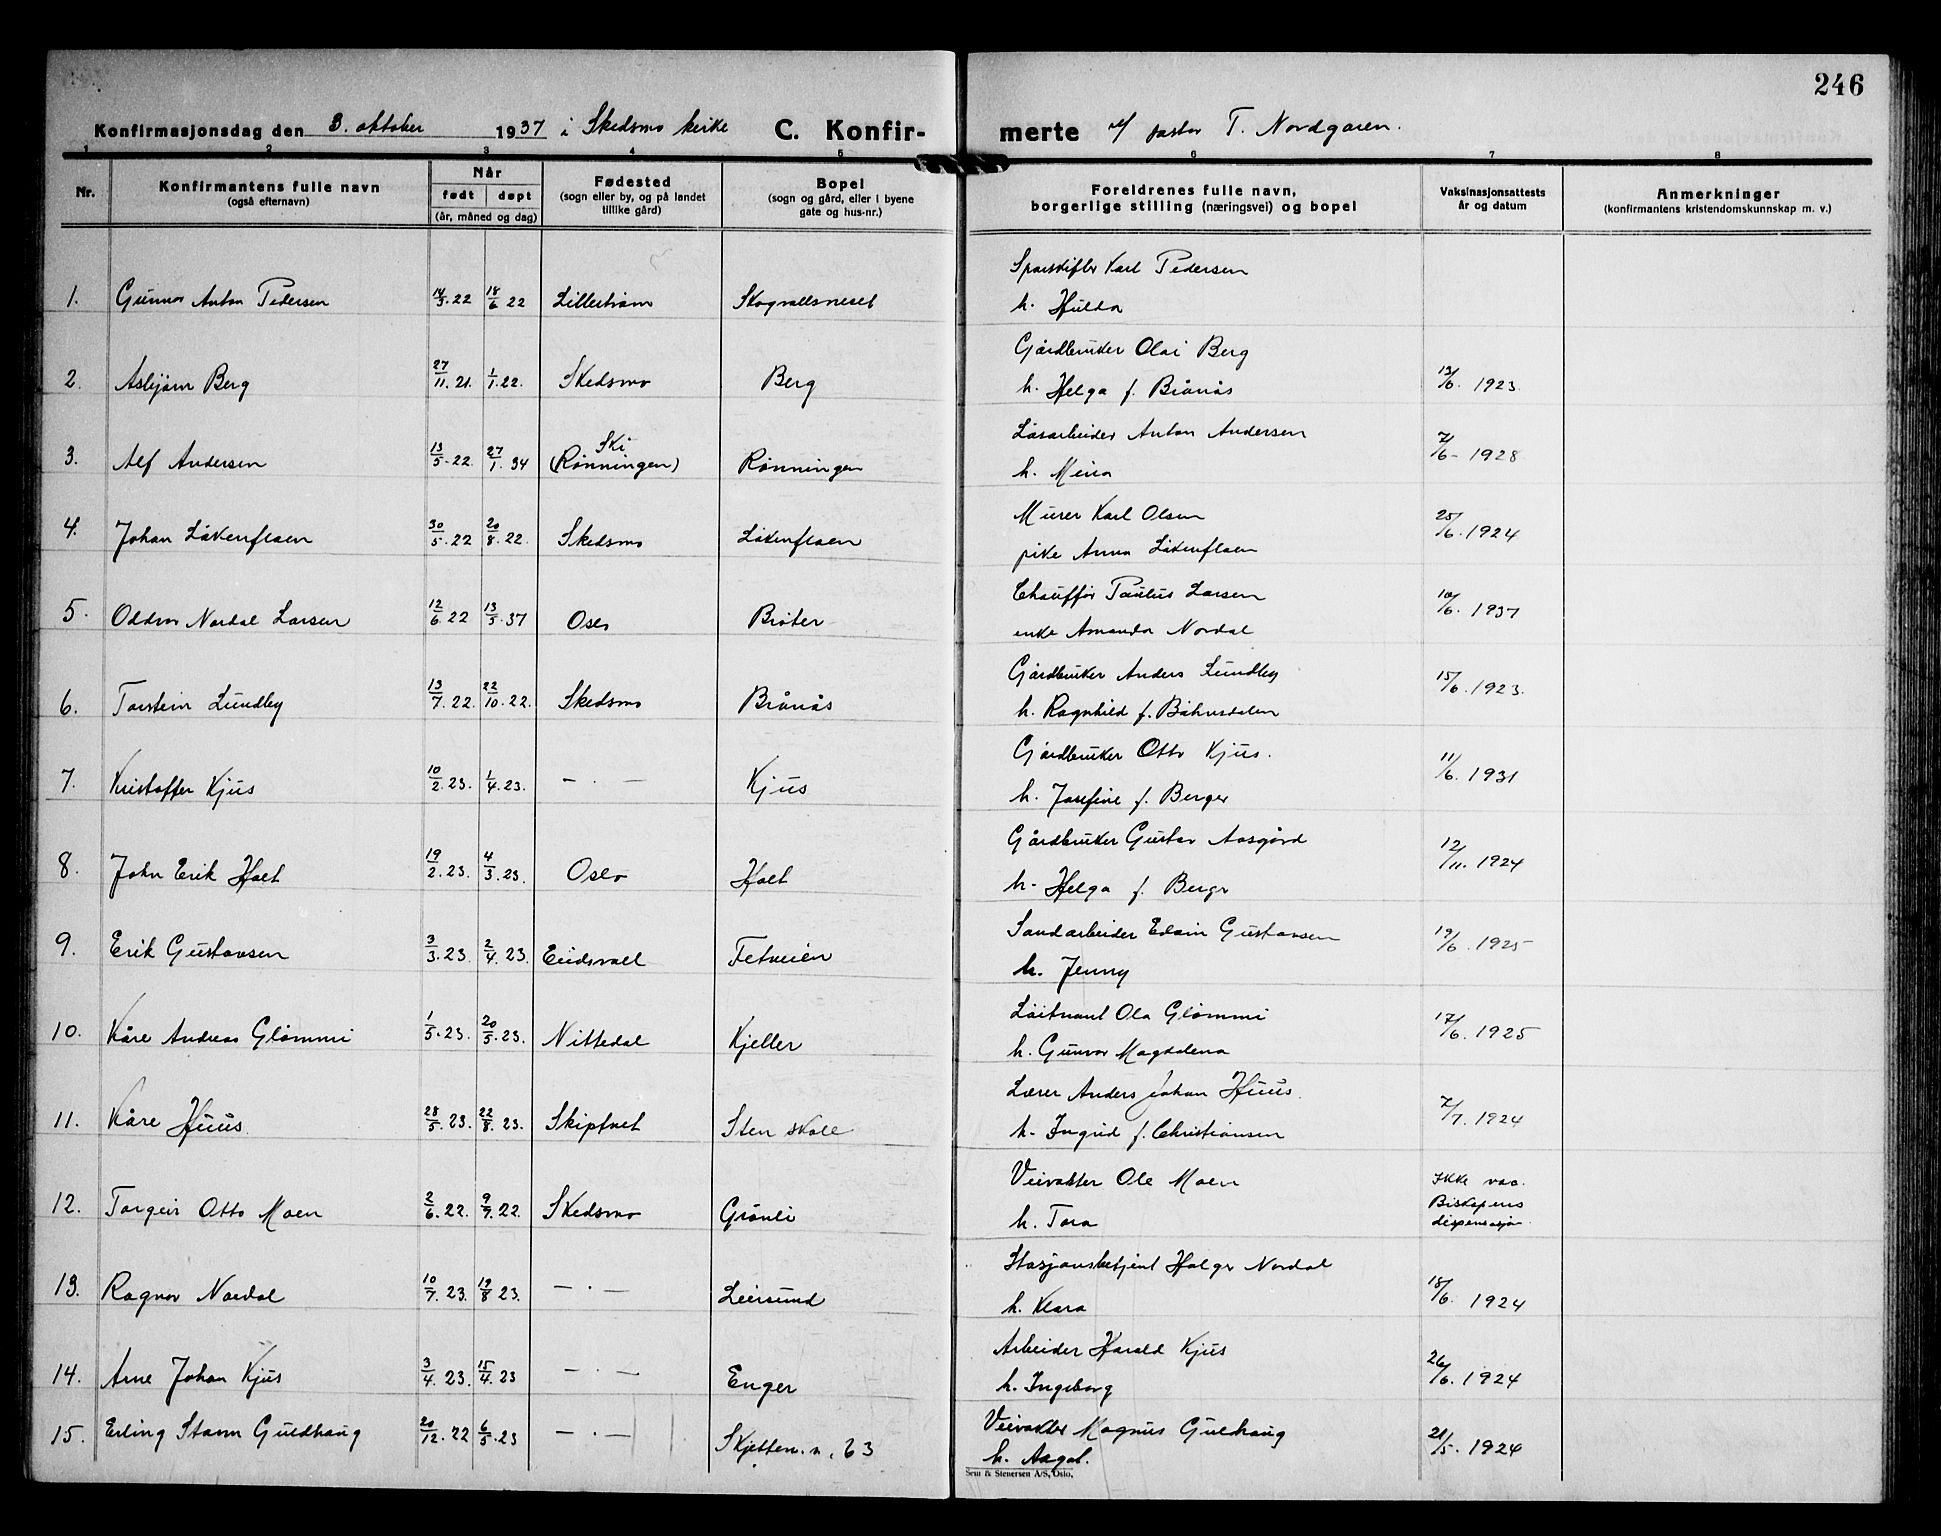 246
Konfirmasjonsdag den 3. oktober 1937 i Skedsmo kirke C. Konfirmerte v/ pastor T. Nordgaren.
1 2 3 4 5 6 7 8
Nr. Konfirmantens fulle navn (også efternavn) Når født døpt (år, måned og dag) Fødested (sogn eller by, og på landet tillike gård) Bopel (sogn og gård, eller i byene gate og hus-nr.) Foreldrenes fulle navn, borgerlige stilling (næringsvei) og bopel Vaksinasjonsattests år og datum Anmerkninger (konfirmantens kristendomskunnskap m. v.)
1. Gunnar Anton Pedersen 14/3.22 18/6 22 Lillestrøm Skogvollsneset Karl Pedersen
h. Hulda
2. Asbjørn Berg 27/11.21. 1/1.22. Skedsmo Berg Gårdbruker Olai Berg
h. Helga f. Brånås 13/6. 1923.
3. Alf Andersen 13/5.22. 27/1.34 Ski (Rønningen) Rønningen Anton Andersen
h. Mina 7/6 - 1928
4. Johan Låkenflaen 30/5.22 20/8.22. Skedsmo Låkenflaen Murer Karl Olsen
pike Anna Låkenflaen 25/6.1924
5. Oddvar Nordal Larsen 12/6.22 13/5.37 Oslo Bråter Chauffør Paulus Larsen
enke Amanda Nordal 10/6. 1937
6. Torstein Lundby 13/7.22. 22/10.22. Skedsmo Brånås Gårdbruker Anders Lundby
h. Ragnhild f. Båhusdalen 15/6.1923.
7. Kristoffer Kjus 10/2.23. 1/4.23. — . — Kjus Gårdbruker Otto Kjus.
h. Josefine f. Berger 11/6. 1931
8. John Erik Holt 19/2.23. 4/3.23. Oslo Holt Gårdbruker Gustav Aasgård
h. Helga f. Berger 12/11. 1924
9. Erik Gustavsen 3/3.23. 2/4.23. Eidsvoll Fetveien Sandarbeider Edvin Gustavsen
h. Jenny 19/6.1925
10. Kåre Andreas Glømmi 1/5.23. 20/5.23. Nittedal Kjeller Løitnant Ola Glømmi
h. Gunvor Magdalena 17/6.1925
11. Kåre Huus. 28/5.23. 22/8.23. Skiptvet Sten skole Lærer Anders Johan Huus.
h. Ingrid f. Christiansen 7/7.1924
12. Torgeir Otto Moen 2/6.22. 9/7.22. Skedsmo Grønli Veivokter Ole Moen
h. Tora Ikke vac. Biskopens dispensasjon
13. Ragnar Nordal 10/7.23. 19/8 23. — . — Leirsund Stasjonsbetjent Holger Nordal
h. Klara 18/6. 1924
14. Arne Johan Kjus 3/4.23. 15/4.23 — . — Enger Arbeider Harald Kjus
h. Ingeborg 26/6.1924
15. Erling Stamm Guldhaug 20/12.22 6/5.23 — . — Skjetten.n.63 Veivokter Magnus Guldhaug
h. Aagot. 21/5.1924
Sem & Stenersen A/S, Oslo.